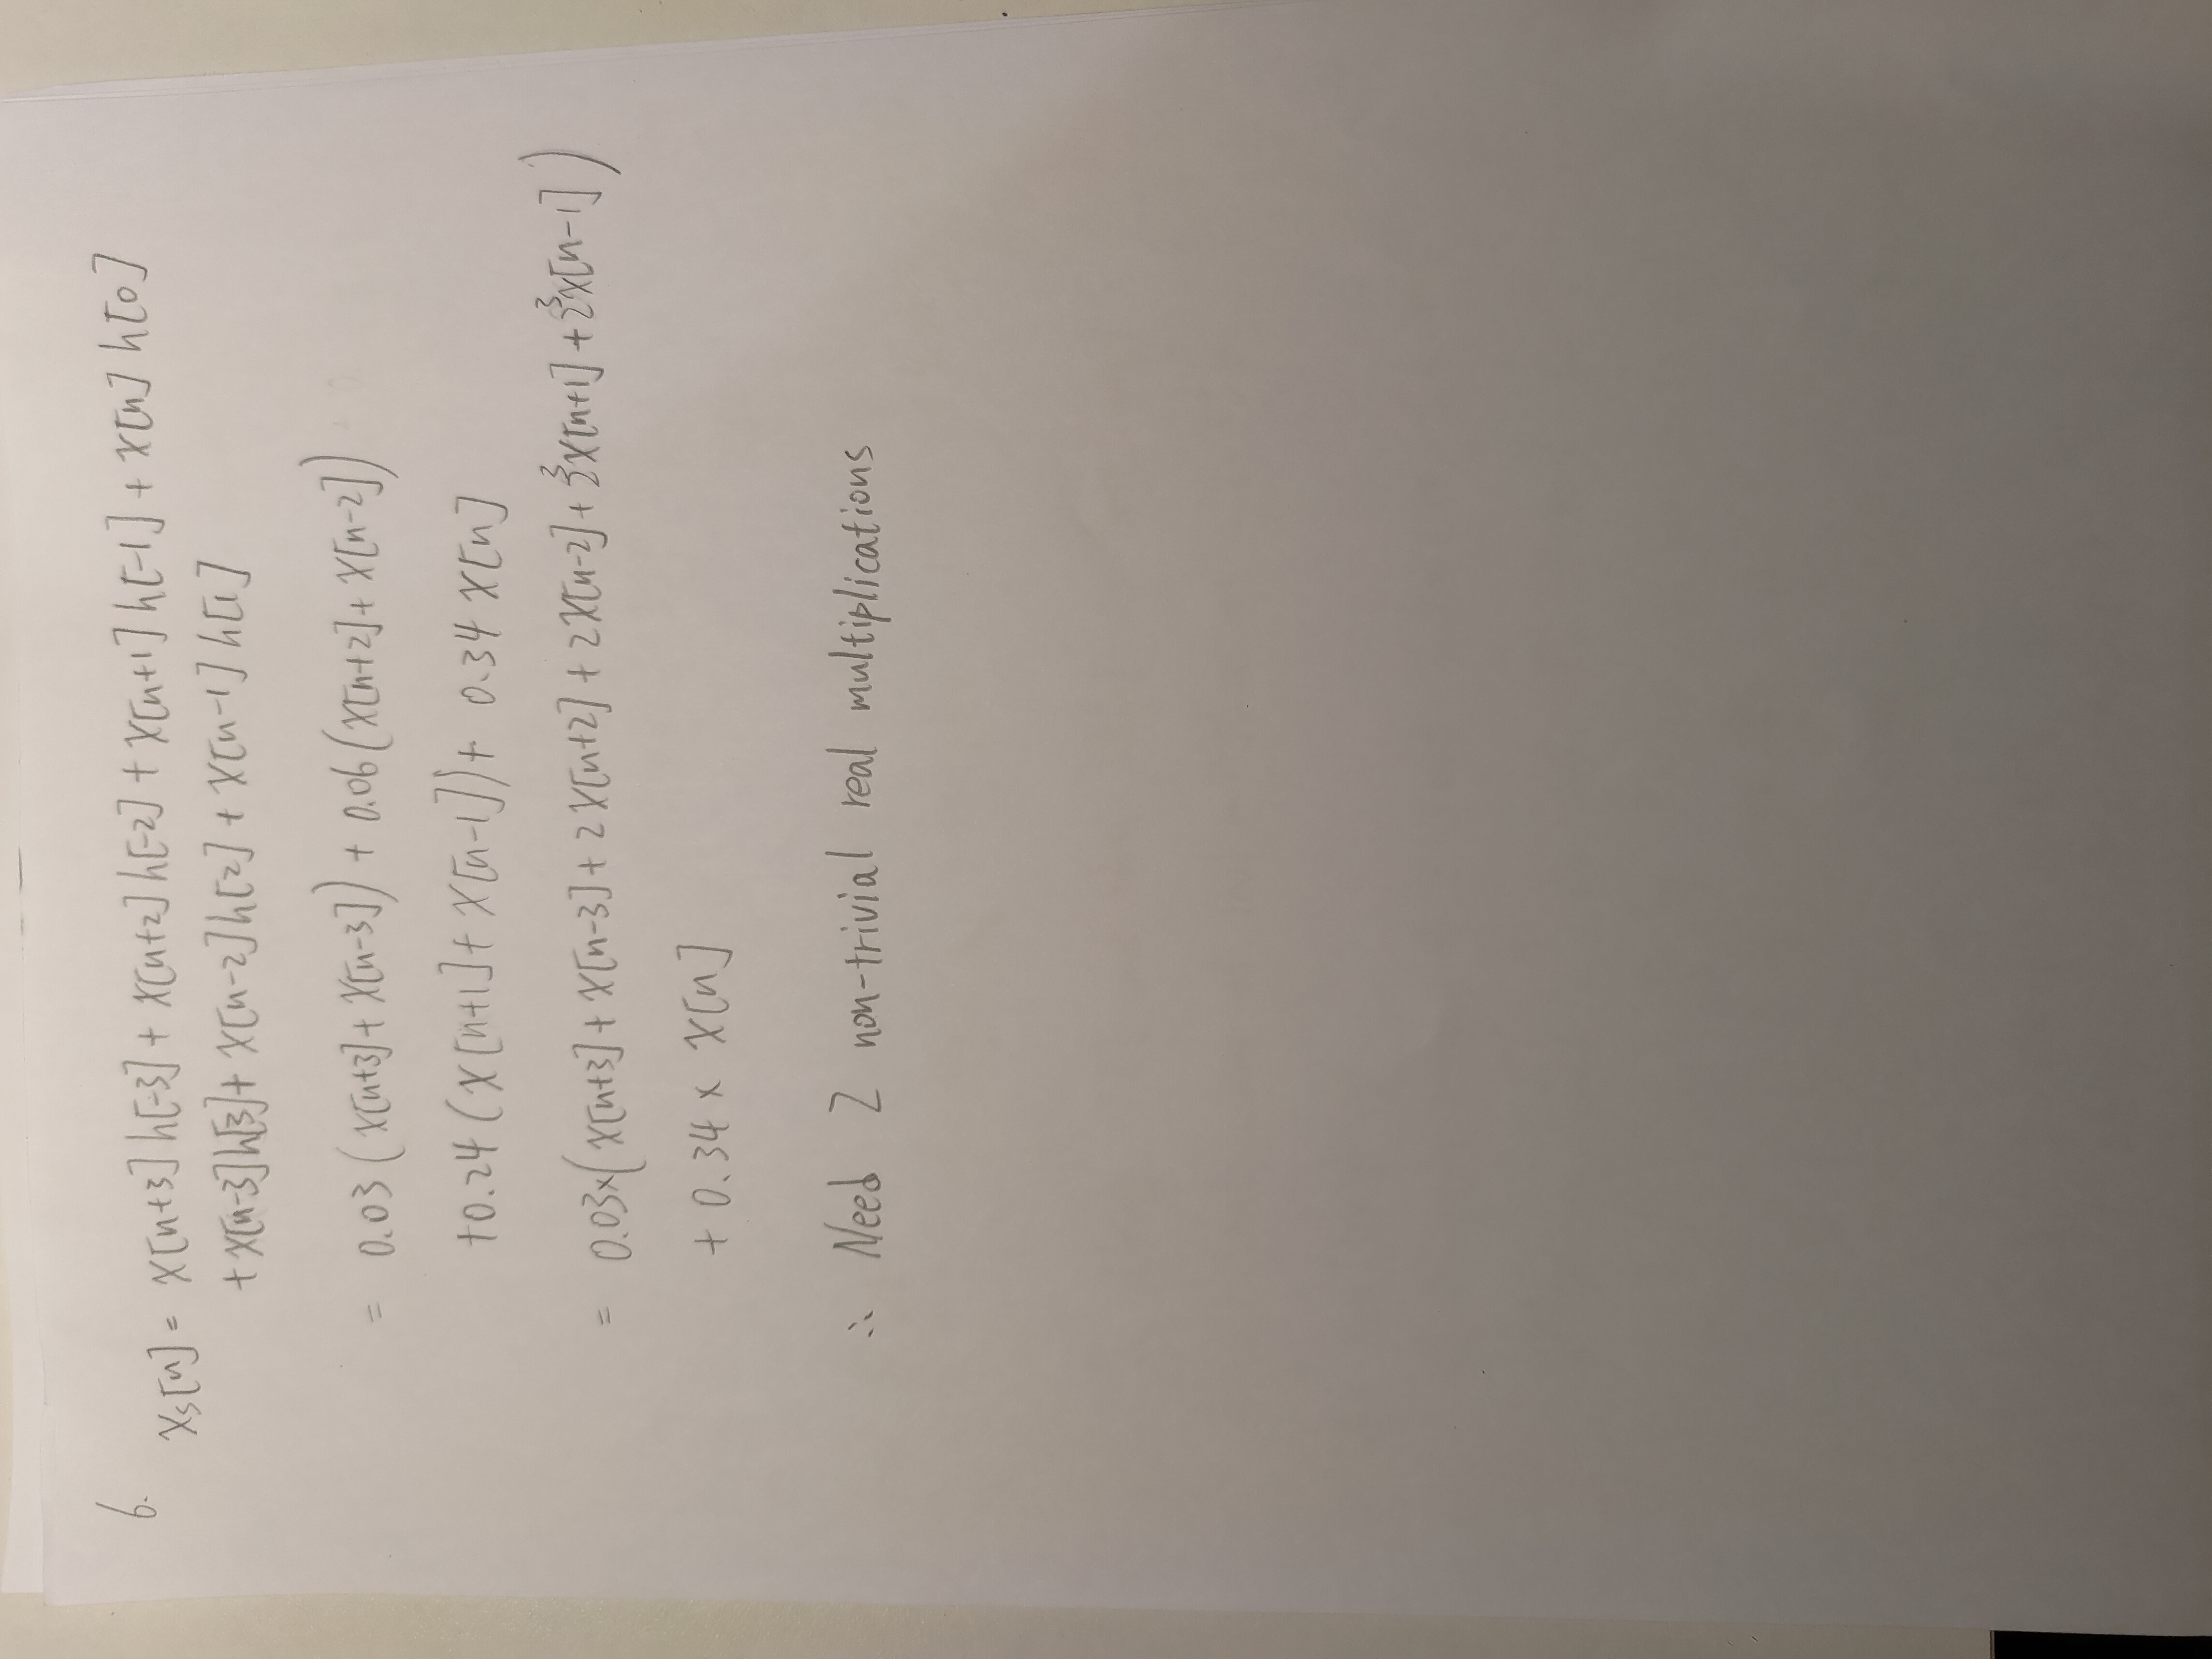 6.
xs[n] = x[n+3] h[-3] + x[n+2] h[-2] + x[n+1] h[-1] + x[n] h[0]
+ x[n-3] h[3] + x[n-2] h[2] + x[n-1] h[1]
= 0.03 (x[n+3] + x[n-3]) + 0.06 (x[n+2] + x[n-2])
+0.24 (x[n+1] + x[n-1]) + 0.34 x[n]
= 0.03×(x[n+3] + x[n-3] + 2x[n+2] + 2x[n-2] + 2³x[n+1] + 2³x[n-1])
+ 0.34 × x[n]
∴ Need 2 non-trivial real multiplications